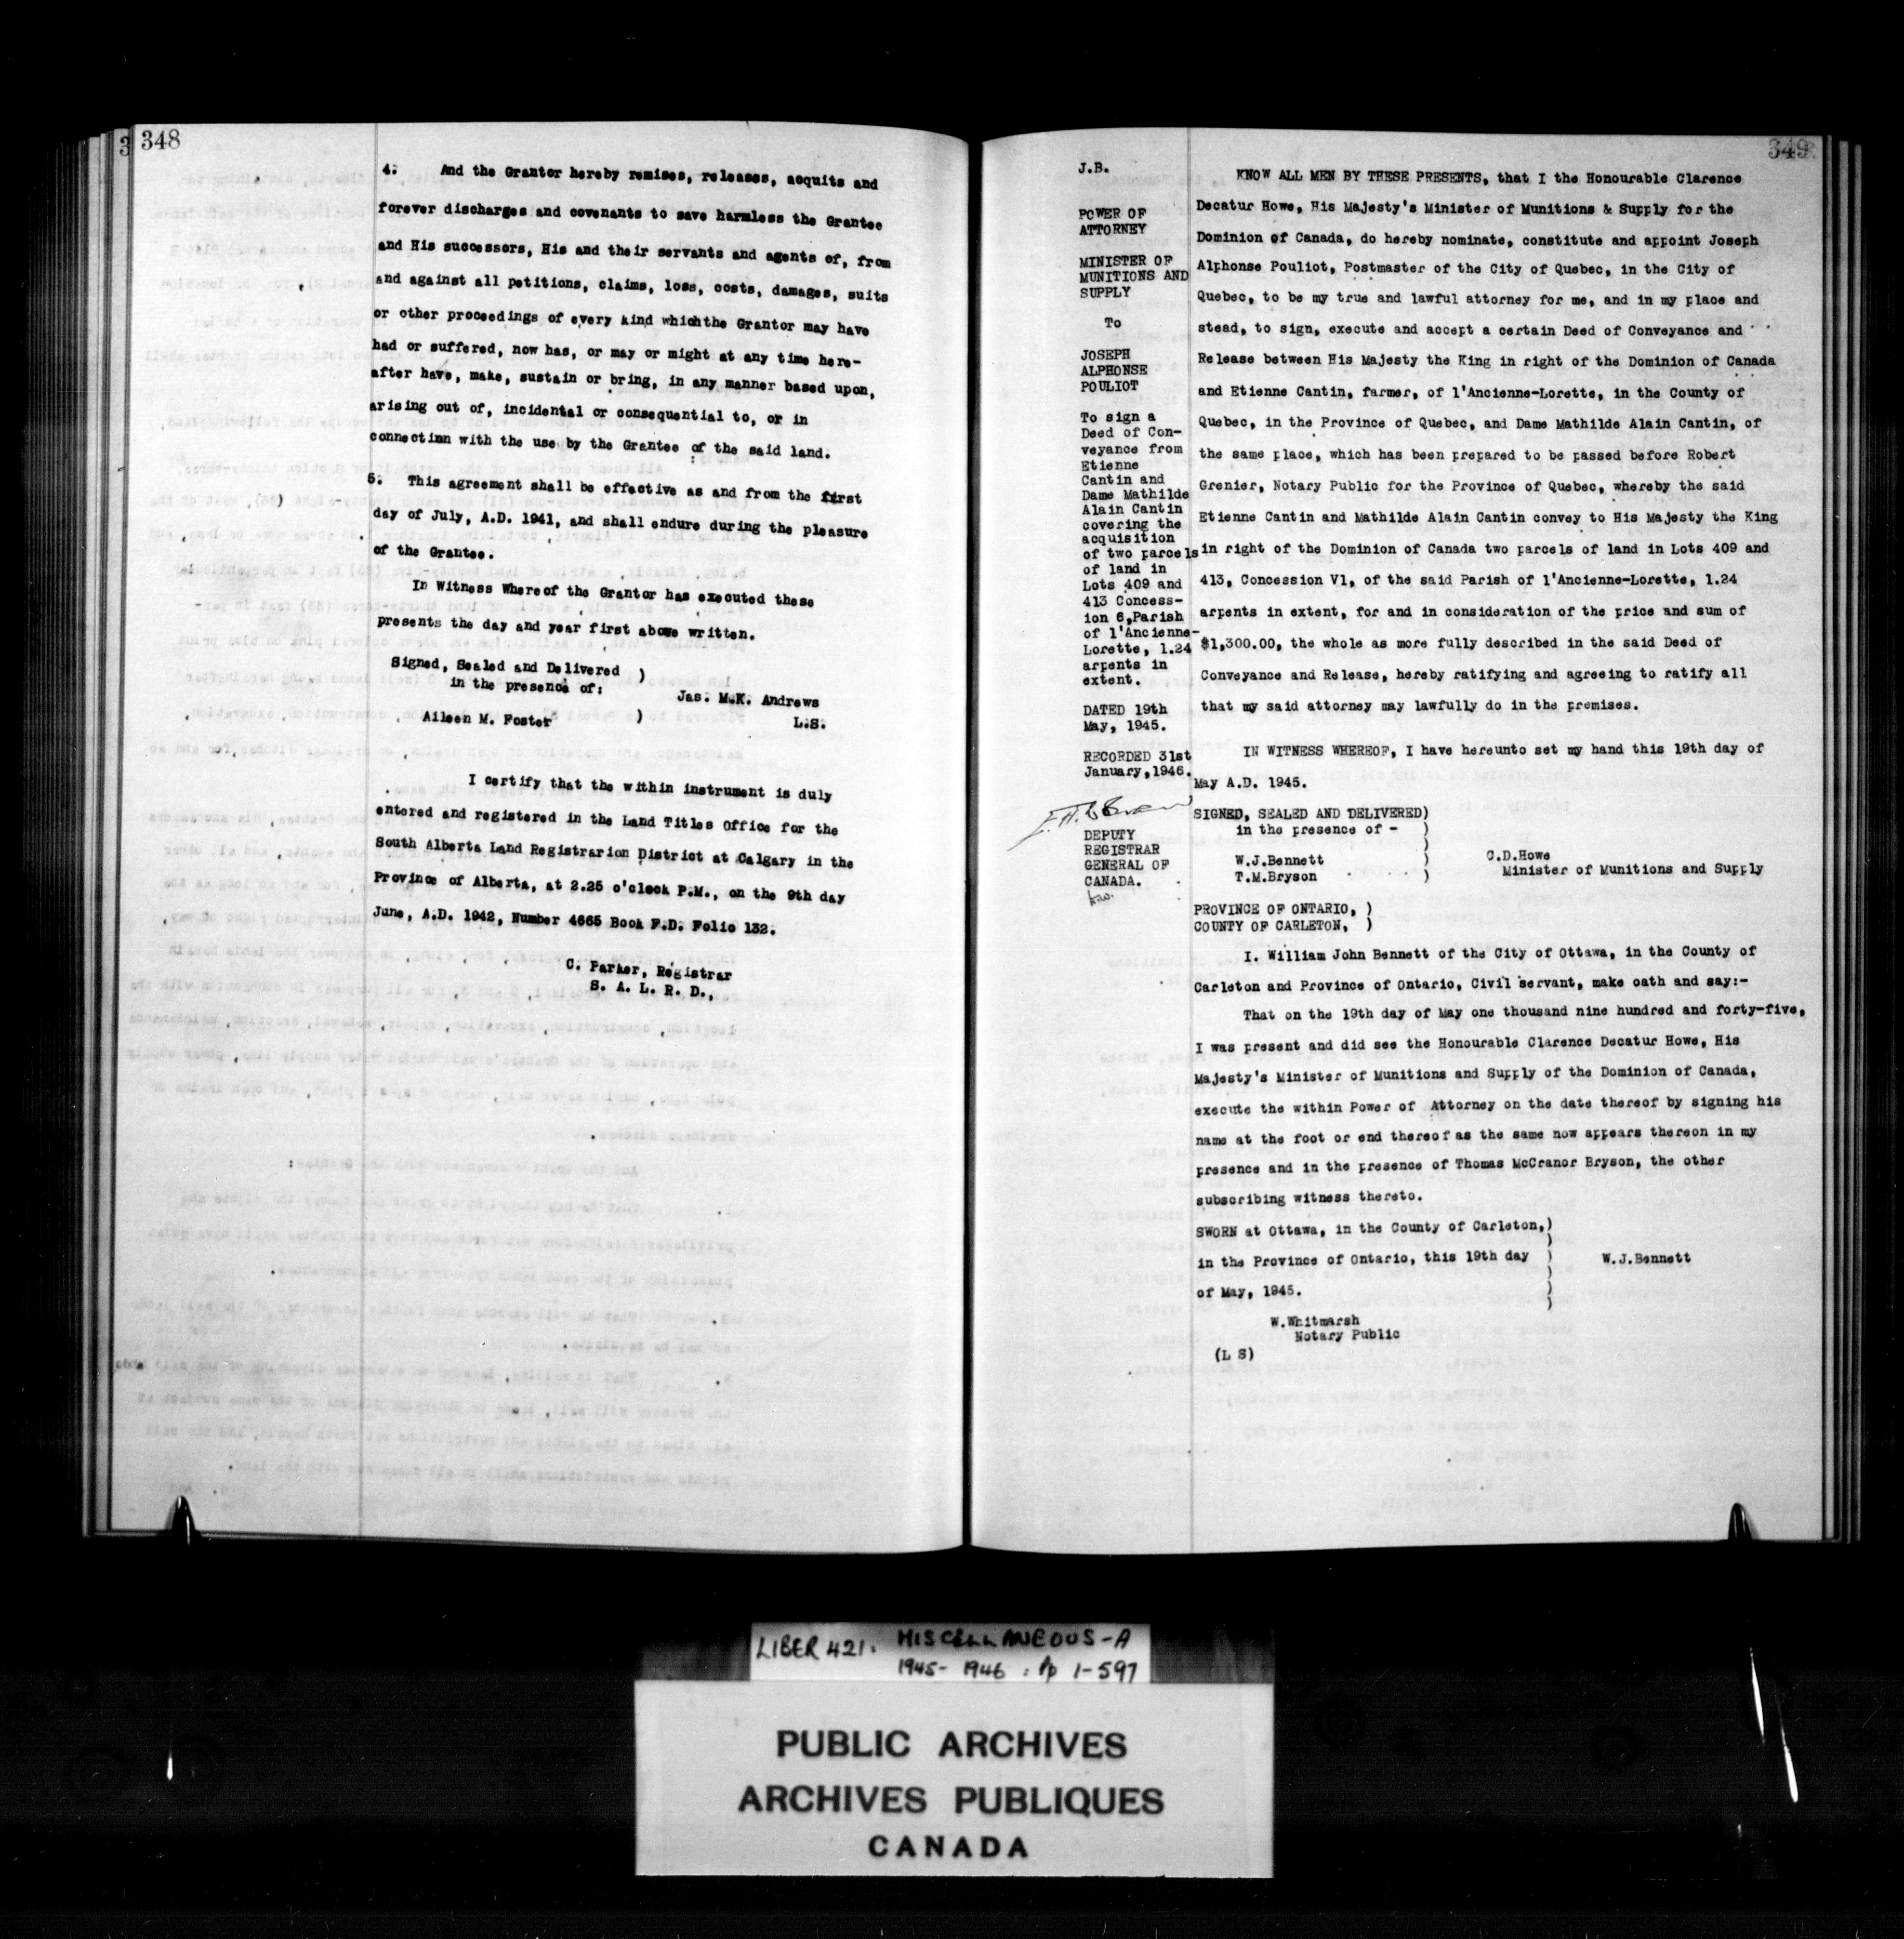 348
4. And the Grantor hereby remises, releases, acquits and
forever discharges and covenants to save harmless the Grantee
and His successors, His and their servants and agents of, from
and against all petitions, claims, loss, costs, damages, suits
or other proceedings of every kind whichthe Grantor may have
had or suffered, now has, or may or might at any time here-
after have, make, sustain or bring, in any manner based upon,
arising out of, incidental or consequential to, or in
connection with the use by the Grantee of the said land.
5. This agreement shall be effective as and from the first
day of July, A.D. 1941, and shall endure during the pleasure
of the Grantee.
In Witness Whereof the Grantor has executed these
presents the day and year first above written.
Signed, Sealed and Delivered )
in the presence of:
Jas. M.K. Andrews
Aileen M. Foster ) L.S.
I certify that the within instrument is duly
entered and registered in the Land Titles Office for the
South Alberta Land Registrarion District at Calgary in the
Province of Alberta, at 2.25 o'clock P.M., on the 9th day
June, A.D. 1942, Number 4665 Book F.D. Folio 132.
C. Parker, Registrar
S. A. L. R. D.,
349
J.B.
POWER OF
ATTORNEY
MINISTER OF
MUNITIONS AND
SUPPLY
To
JOSEPH
ALPHONSE
POULIOT
To sign a
Deed of Con-
veyance from
Etienne
Cantin and
Dame Mathilde
Alain Cantin
covering the
acquisition
of two parcels
of land in
Lots 409 and
413 Concess-
ion 6,Parish
of l'Ancienne-
Lorette, 1.24
arpents in
extent.
DATED 19th
May, 1945.
RECORDED 31st
January,1946.
DEPUTY
REGISTRAR
GENERAL OF
CANADA.
KNOW ALL MEN BY THESE PRESENTS, that I the Honourable Clarence
Decatur Howe, His Majesty's Minister of Munitions & Supply for the
Dominion of Canada, do hereby nominate, constitute and appoint Joseph
Alphonse Pouliot, Postmaster of the City of Quebec, in the City of
Quebec, to be my true and lawful attorney for me, and in my place and
stead, to sign, execute and accept a certain Deed of Conveyance and
Release between His Majesty the King in right of the Dominion of Canada
and Etienne Cantin, farmer, of l'Ancienne-Lorette, in the County of
Quebec, in the Province of Quebec, and Dame Mathilde Alain Cantin, of
the same place, which has been prepared to be passed before Robert
Grenier, Notary Public for the Province of Quebec, whereby the said
Etienne Cantin and Mathilde Alain Cantin convey to His Majesty the King
in right of the Dominion of Canada two parcels of land in Lots 409 and
413, Concession V1, of the said Parish of l'Ancienne-Lorette, 1.24
arpents in extent, for and in consideration of the price and sum of
$1,300.00, the whole as more fully described in the said Deed of
Conveyance and Release, hereby ratifying and agreeing to ratify all
that my said attorney may lawfully do in the premises.
IN WITNESS WHEREOF, I have hereunto set my hand this 19th day of
May A.D. 1945.
SIGNED, SEALED AND DELIVERED)
in the presence of - )
)
W.J.Bennett ) C.D.Howe
T.M.Bryson ) Minister of Munitions and Supply
PROVINCE OF ONTARIO, )
COUNTY OF CARLETON, )
I. William John Bennett of the City of Ottawa, in the County of
Carleton and Province of Ontario, Civil servant, make oath and say:-
That on the 19th day of May one thousand nine hundred and forty-five,
I was present and did see the Honourable Clarence Decatur Howe, His
Majesty's Minister of Munitions and Supply of the Dominion of Canada,
execute the within Power of Attorney on the date thereof by signing his
name at the foot or end thereof as the same now appears thereon in my
presence and in the presence of Thomas McCranor Bryson, the other
subscribing witness thereto.
SWORN at Ottawa, in the County of Carleton,)
)
in the Province of Ontario, this 19th day ) W.J.Bennett
)
of May, 1945. )
)
W.Whitmarsh
Notary Public
(L S)
LIBER 421. MISCELLANEOUS-A
1945- 1946 : Pp 1-597
PUBLIC ARCHIVES
ARCHIVES PUBLIQUES
CANADA